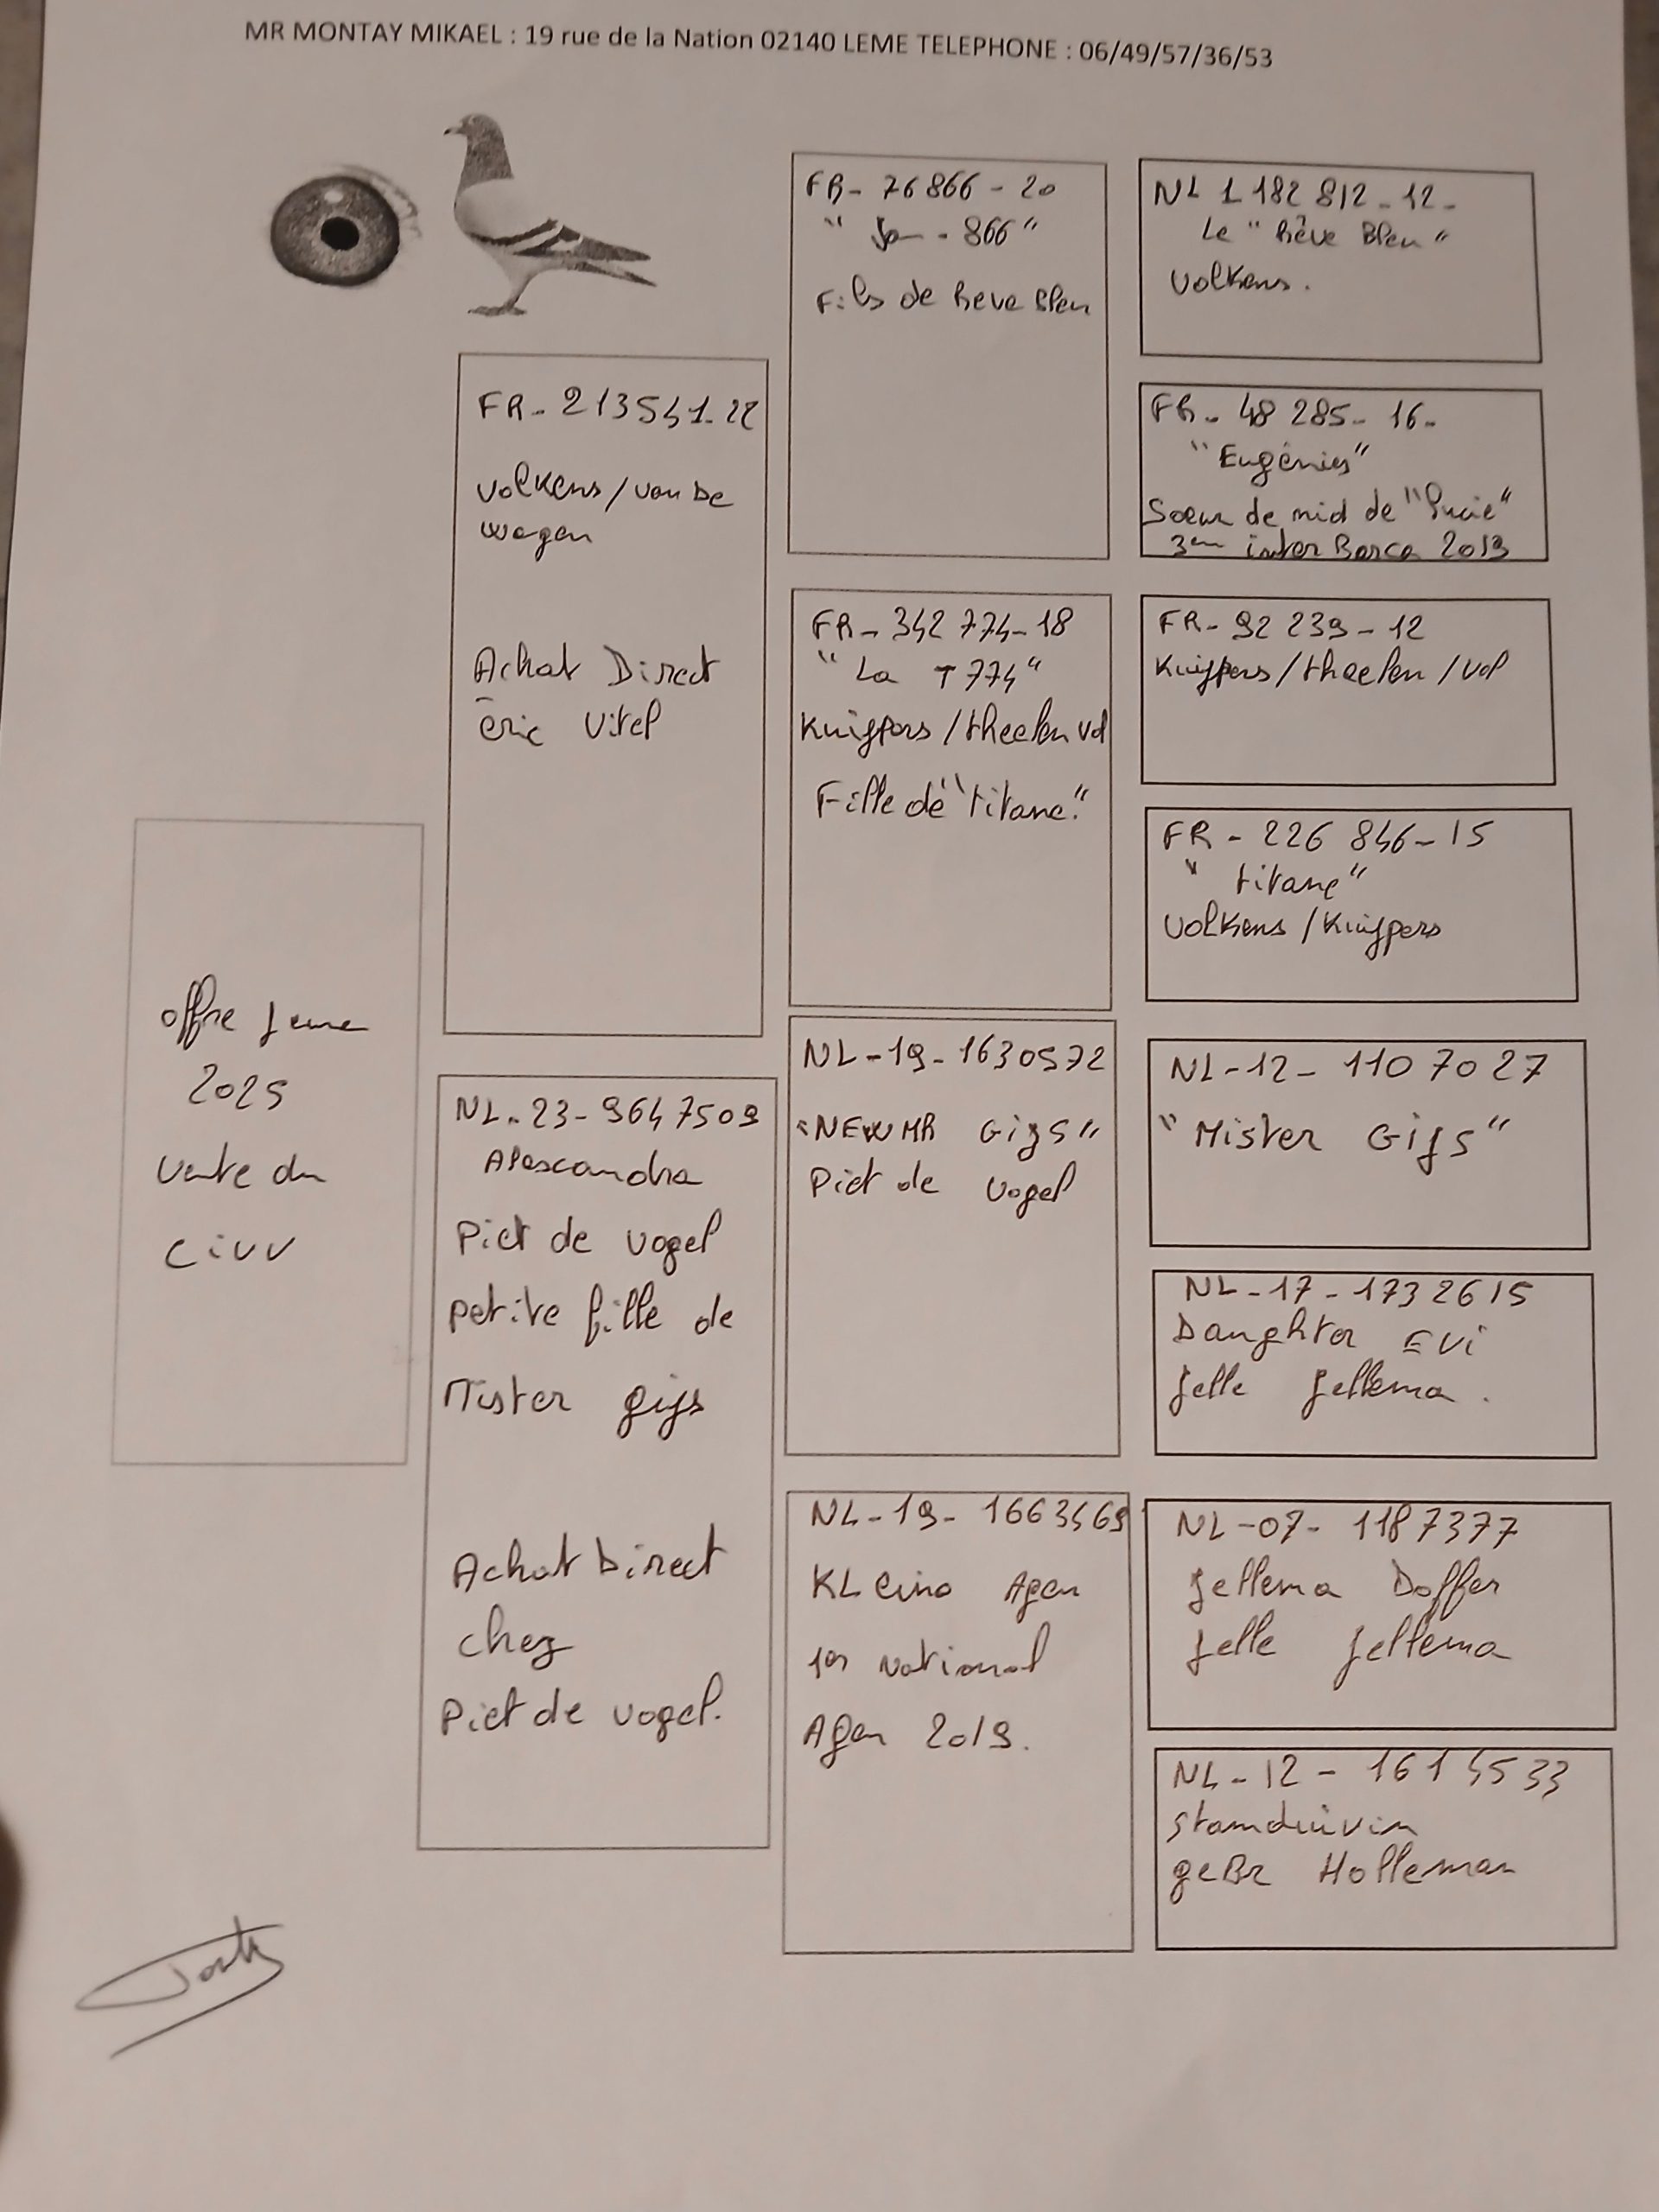 MR MONTAY MIKAEL : 19 rue de la Nation 02140 LEME TELEPHONE : 06/49/57/36/53
offre Jeune
2025
Vente du
CiVV
FR- 213541-22
Volkens/van De
wegen
Achat Direct
éric Vitel
NL-23-9647509
Alexandra
Piet de Vogel
Petite fille de
Mister gijs
Achat Direct
chez
Piet de vogel.
FR- 76866 - 20
866"
Fils de Reve Bleu
FR- 342 774-18
"La T774"
Kuijpers/theelen vol
Fille de "titane"
NL-19-1630572
"NEW MR Gijs"
Piet de Vogel
NL-19-1663469
KLeine Agen
1er National
Agen 2019.
NL 1 182 812-12-
Le "Rêve Bleu"
Volkens.
FR- 48 285- 16-
"Eugénies"
Soeur de nid de "Lucie"
3em inter Barca 2013
FR- 92 239-12
Kuijpers/theelen/vol
FR- 226 846-15
"titane"
Volkens/Kuijpers
NL-12- 110 70 27
"Mister Gijs"
NL-17-1732615
Daughter Evi
Jelle Jellema.
NL-07- 1187377
Jellema Doffer
Jelle Jellema
NL-12- 1614533
Stamduivin
geBr Holleman